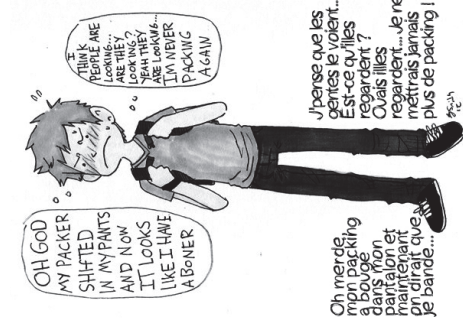 OH GOD
MY PACKER
SHIFTED
IN MY PANTS
AND NOW
IT LOOKS
LIKE I HAVE
A BONER
I
THINK
PEOPLE ARE
LOOKING...
ARE THEY
LOOKING?
YEAH THEY
ARE LOOKING...
I'M NEVER
PACKING
AGAIN
Oh merde,
mon packing
a bougé
dans mon
pantalon et
maintenant
on dirait que
je bande...
J'pense que les
gentes le voient...
Est-ce qu'illes
regardent ?
Ouais illes
regardent... Je ne
mettrais jamais
plus de packing !